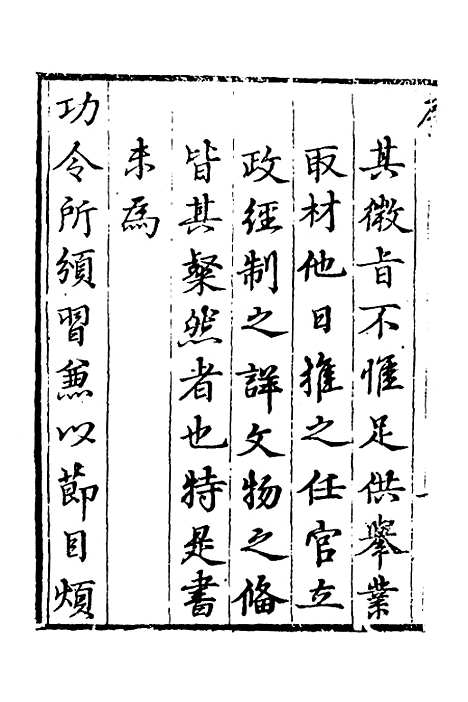 其微旨不惟足供舉業
取材他日推之任官立
政經制之詳文物之俻
皆其粲然者也特是書
未爲
功令所頒習兼以節目煩